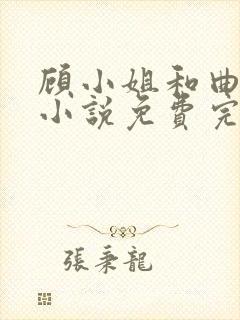 顾小姐和曲
小説免費完
張秉龍